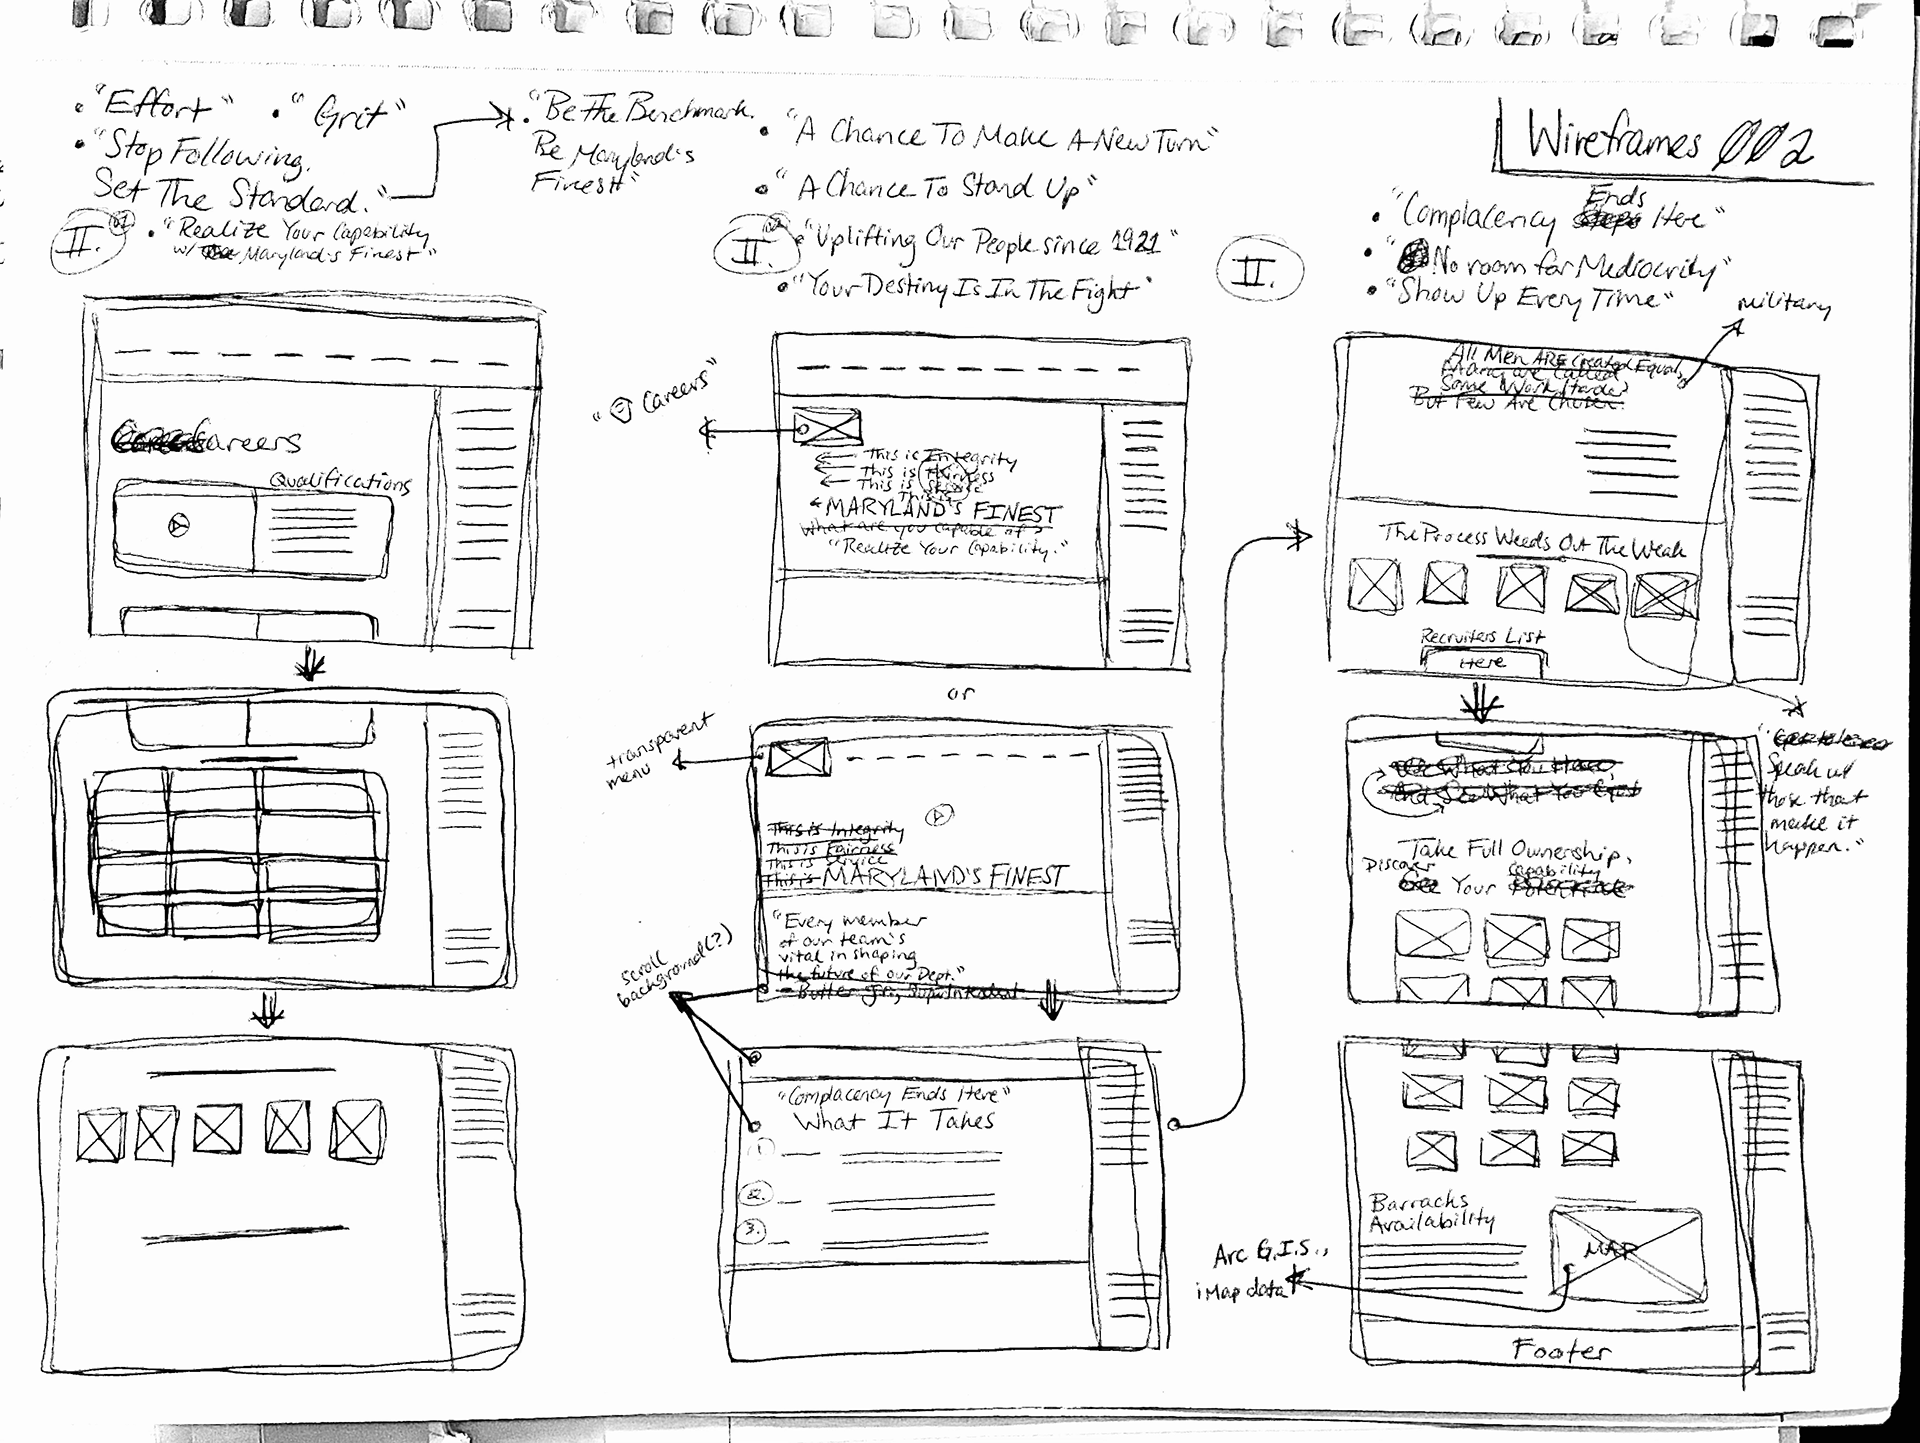 • "Effort" • "Grit"
• "Stop Following.
Set The Standard."
• "Be The Benchmark.
Be Maryland's
Finest"
II. 01
• "Realize Your Capability
w/ Maryland's Finest"
Careers
Qualifications
• "A Chance To Make A New Turn"
• "A Chance To Stand Up"
II. 02
• "Uplifting Our People since 1921"
• "Your Destiny Is In The Fight"
" Careers"
This is Integrity
This is Fairness
This is Service
This is
MARYLAND'S FINEST
What are you capable of?
"Realize Your Capability."
or
transparent
menu
This is Integrity
This is Fairness
This is Service
This is MARYLAND'S FINEST
"Every member
of our team's
vital in shaping
the future of our Dept."
- Butler Jr., Superintendent
scroll
background(?)
"Complacency Ends Here"
What It Takes
1.
2.
3.
Wireframes 002
II.
• "Complacency Ends Here"
• "No room for Mediocrity"
• "Show Up Every Time"
military
All Men ARE Created Equal,
Many are Called
Some Work Harder
But Few Are Chosen.
The Process Weeds Out The Weak
Recruiters List
Here
" Speak w/
those that
make it
happen."
Take What You Have,
And See What You Get
Take Full Ownership,
Discover Your Capability
Barracks
Availability
MAP
Arc G.I.S.,
iMap data
Footer